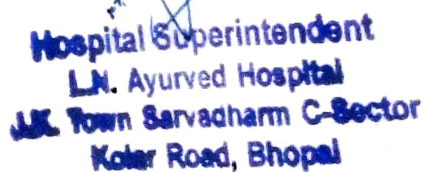 Hospital Superintendent
L.N. Ayurved Hospital
J.K. Town Sarvadharm C-Sector
Kolar Road, Bhopal